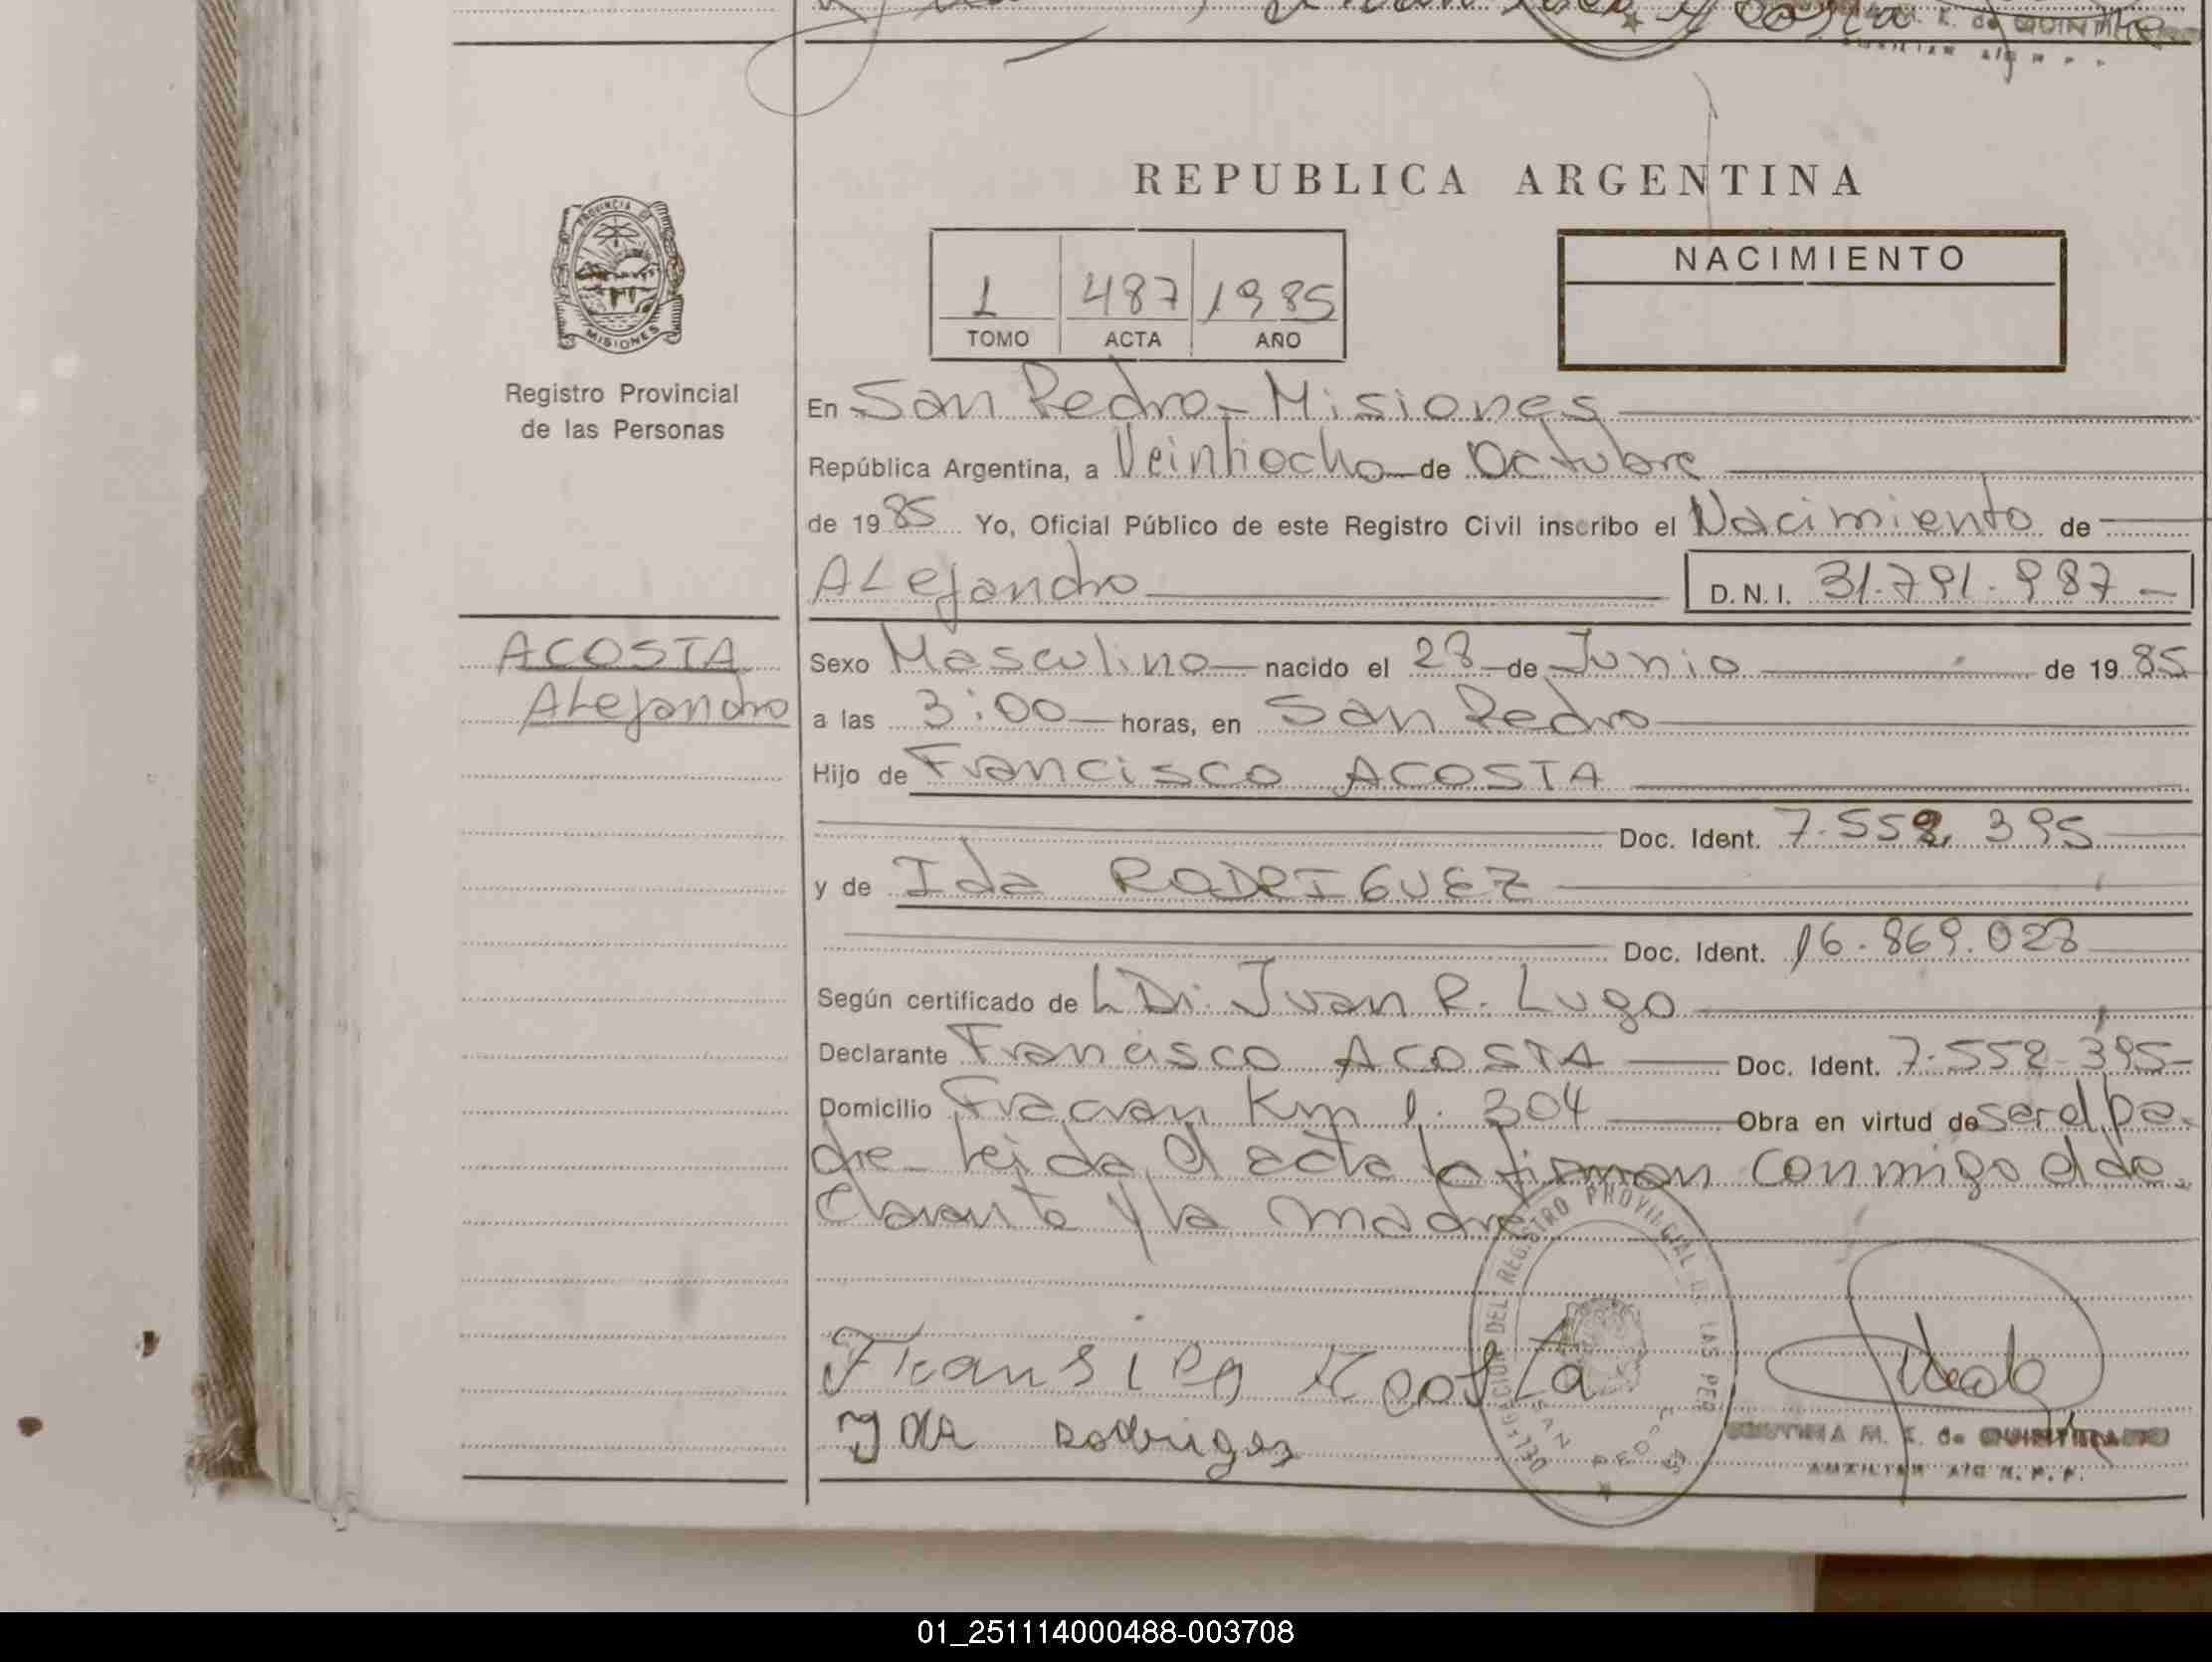 Acosta
M. K. de QUINTEROS
AUXILIAR
PROVINCIA DE
MISIONES
Registro Provincial
de las Personas
REPUBLICA ARGENTINA
NACIMIENTO
1 487 1985
TOMO ACTA AÑO
En San Pedro - Misiones
República Argentina, a Veintiocho de Octubre
de 1985 Yo, Oficial Público de este Registro Civil inscribo el Nacimiento de
ALejandro D.N.I. 31.791.987 -
ACOSTA
ALejandro
Sexo Masculino nacido el 28 de Junio de 1985
a las 3:00 horas, en San Pedro
Hijo de Francisco ACOSTA
Doc. Ident. 7.558.395
y de Ida RODRIGUEZ
Doc. Ident. 16.869.028
Según certificado de Juan R. Lugo
Declarante Francisco ACOSTA Doc. Ident. 7.558.395-
Domicilio Fracran Km 304 Obra en virtud de ser el pa-
dre - leida el acta la firman conmigo el de-
clarante y la madre
Acosta
Rodrigez
DELEGACION DEL REGISTRO PROVINCIAL DE LAS PERSONAS
SAN PEDRO
M. K. de
AUXILIAR
01_251114000488-003708